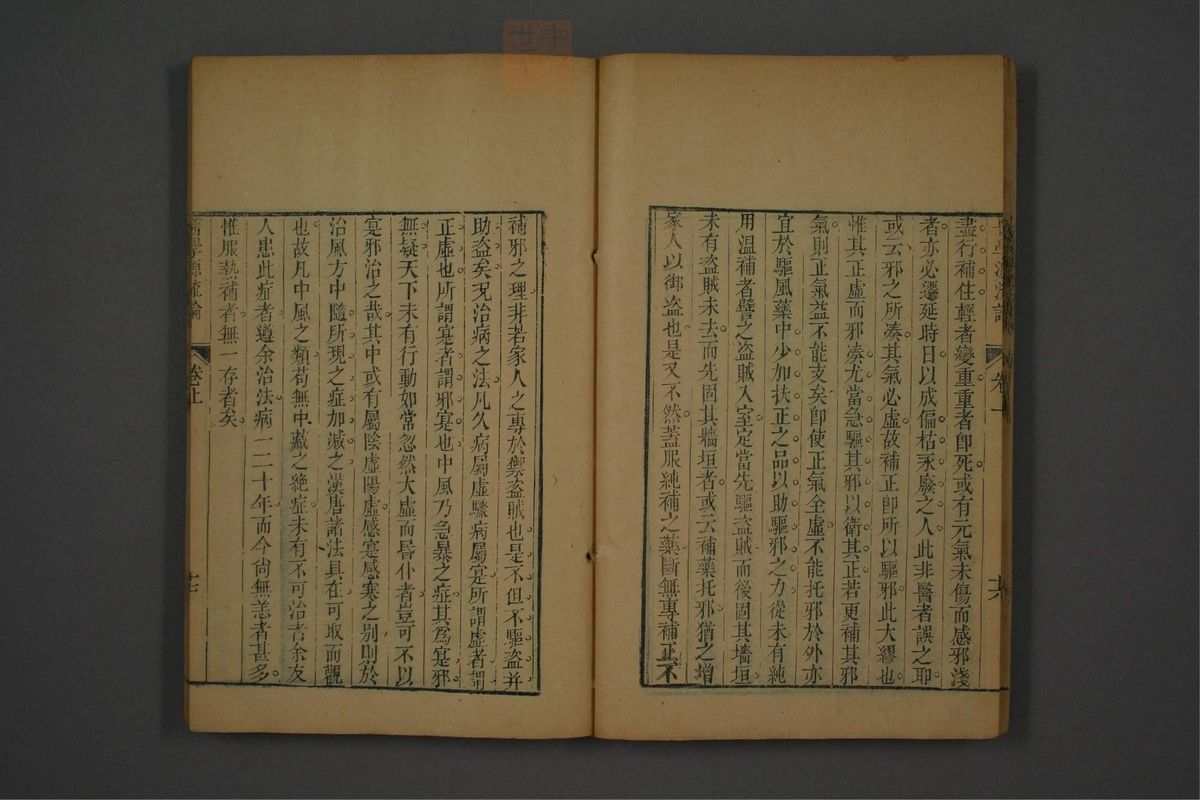 盡行補住輕者變重重者卽死或有元氣未傷而感邪淺
者亦必遷延時日以成偏枯永廢之人此非醫者誤之耶
或云邪之所湊其氣必虛故補正卽所以驅邪此大繆也
惟其正虛而邪湊尤當急驅其邪以衛其正若更補其邪
氣則正氣益不能支矣卽使正氣全虛不能托邪於外亦
宜於驅風藥中少加扶正之品以助驅邪之力從未有純
用溫補者譬之盜賊入室定當先驅盜賊而後固其墻垣
未有盜賊未去而先固其牆垣者或云補藥托邪猶之增
家人以御盜也是又不然葢服純補之藥斷無專補正不
補邪之理非若家人之專於禦盜賊也是不但不驅盜并
助盜矣况治病之法凡久病屬虛驟病屬寔所謂虛者謂
正虛也所謂寔者謂邪寔也中風乃急暴之症其爲寔邪
無疑天下未有行動如常忽然大虛而昏仆者豈可不以
寔邪治之哉其中或有屬陰虛陽虛感寔感寒之别則於
治風方中隨所現之症加減之漢唐諸法具在可取而觀
也故凡中風之類苟無中藏之絕症未有不可治者余友
人患此症者遵余治法病一二十年而今尙無恙者甚多
惟服熱補者無一存者矣
醫學源流論 卷上 十七